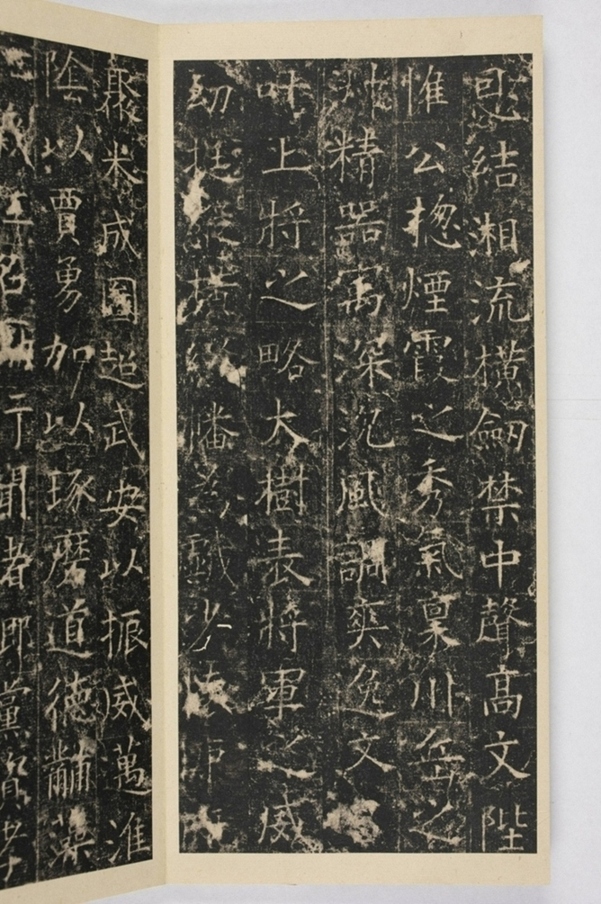 結湘流橫劒禁中聲高文陛
惟公揔煙霞之秀氣稟川岳之
精器寓深沉風調爽逸文
叶上將之略大樹表將軍之威
幼挺橫幡為戲少
聚米成圖超武安以振威萬淮
陰以賈勇加以琢磨道德黼藻
聞者鄉黨資孝